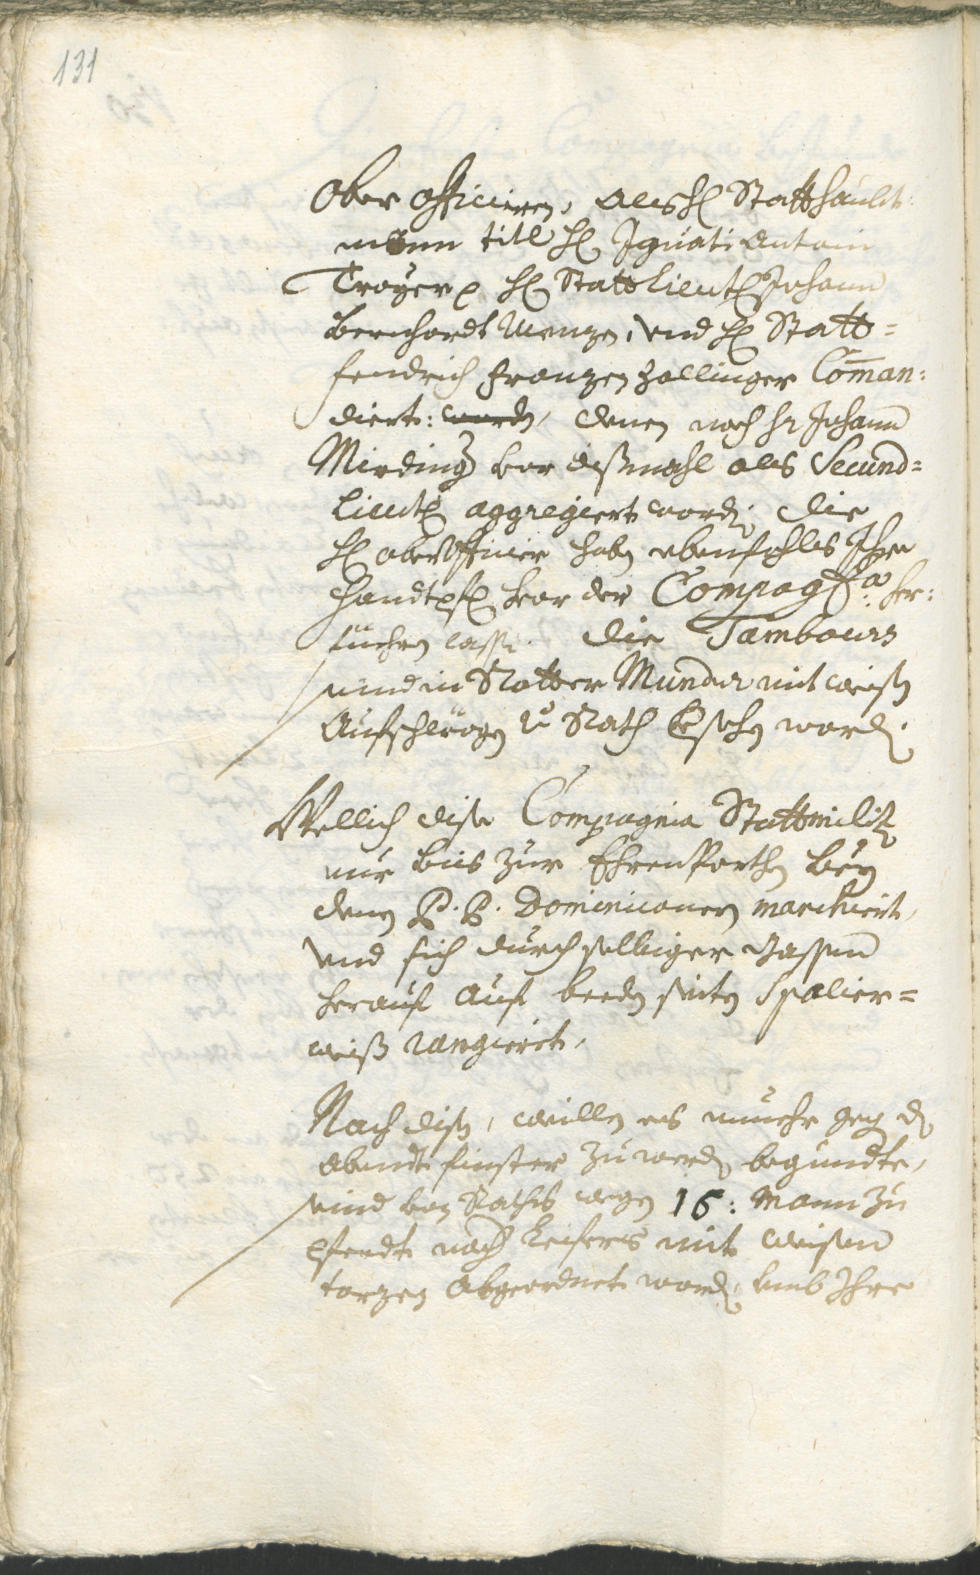 131
Ober Officieren, als H. Statthaubt-
mann titl H. Ignati Antoni
Troyer p H. Statt Lieut. Johann
Bernhardt Menze, und H. Statt=
fendrich Franzen Zallinger Com̄an:
diert: worden, denen noch Hr Johann
Mirding vor dißmahl als Secund=
Lieut. aggregiert worden; die
H. oberofficier haben ebenfahls Ihre
Handtpf. vor der Compag.a her:
fiehren lassen. die Tambours
sind in Rotter Mundur mit weissen
Aufschlägen vom Rath versehen worden.
Wellich dise Compagnia Stattmiliz
nur biis zur Ehren Porthen bey
denen P. P. Dominicanern marchiert,
und sich durch selbiger Gassen
herauf auf beeden seiten Spalier=
weiß rangiert,
Nach disen, weillen es nunmehr gegen den
Abendt finster zu werden begundte,
sind von Raths wegen 16: Mann zu
pferdt nach Leifers mit weissen
torzen abgeordnet worden, umb Ihre